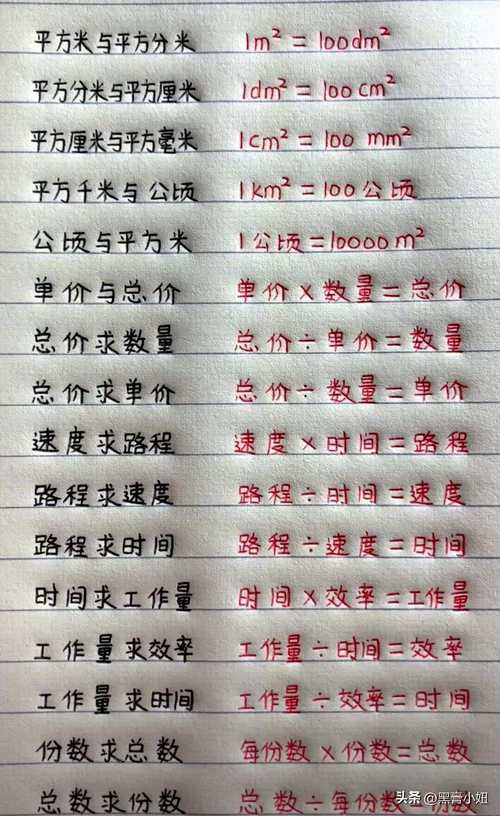 平方米与平方分米 1m² = 100dm²
平方分米与平方厘米 1dm² = 100cm²
平方厘米与平方毫米 1cm² = 100 mm²
平方千米与公顷 1km² = 100公顷
公顷与平方米 1公顷=10000m²
单价与总价 单价×数量=总价
总价求数量 总价÷单价=数量
总价求单价 总价÷数量=单价
速度求路程 速度×时间=路程
路程求速度 路程÷时间=速度
路程求时间 路程÷速度=时间
时间求工作量 时间×效率=工作量
工作量求效率 工作量÷时间=效率
工作量求时间 工作量÷效率=时间
份数求总数 每份数×份数=总数
总数求份数 总数÷每份数=份数
头条 @黑膏小妞